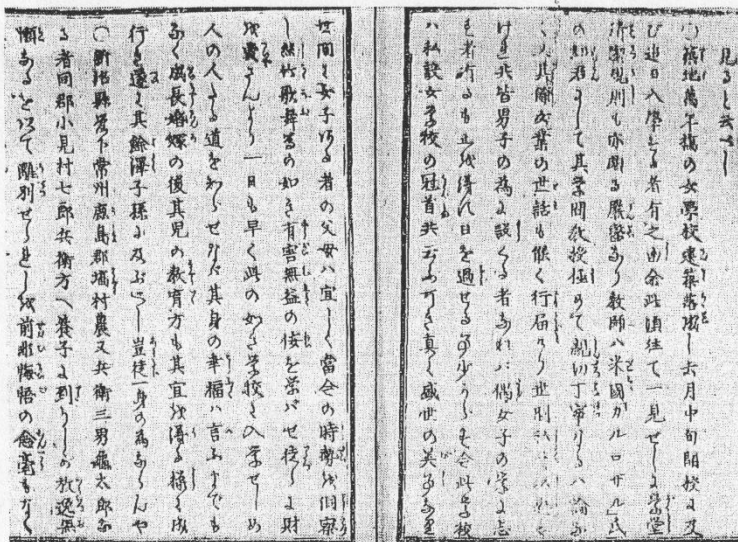 見ると云べし
〇築地萬年橋の女學校建築落成し六月中旬開校よ及
び追日入學する者有之由余此頃往て一見せしよ学堂
清潔規則も亦頗る嚴密なり教師ハ米國カルロザル氏
の細君よして其學問教授極めて親切丁寧なるハ論な
く其餘
けれ共皆男子の為よ設くる者なれバ偶女子の学よ志
も者 日を過せる 少からず全此学校
ハ私設女学校の冠首共云ふ可き真よ盛世の美事なり
世間よ女子ある者の父母ハ宜しく當今の時勢を洞察
し絲竹歌舞等の如き有害無益の伎を学バせ徒らよ財
を費さんより一日も早く此の如き学校よ入学せしめ
人の人たる道を知らせなバ其身の幸福ハ言ふまでも
なく成長婚嫁の後其児の教育方も其宜を得る様よ成
行き遂よ其餘澤子孫よ及ぶべし豈徒一身の為ならんや
〇新治縣管下常州鹿島郡 村農又兵衛三男龜太郎な
る者同郡小見村七郎兵衛方へ養子よ到りしが放逸無
頼なるを以て離別せられしを前非悔悟の念毫もなく